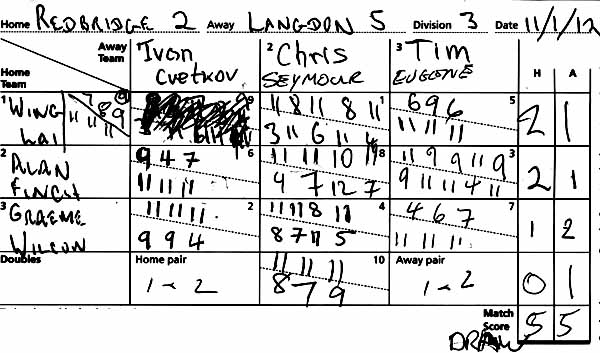 Home REDBRIDGE 2 Away LANGDON 5 Division 3 Date 11/1/12
Away Team Ivan Cvetkov 2 Chris SEYMOUR 3 Tim EUGENE H A
Home Team
1 WING LAI 7 8 9 11 11 11 9 11 8 11 8 11 1 6 9 6 5 2 1
3 11 6 11 4 11 11 11
2 ALAN FINCH 9 4 7 6 11 11 11 10 11 8 11 9 9 11 9 3 2 1
11 11 11 9 7 12 7 9 11 11 4 11
3 GRAEME WILSON 11 11 11 2 11 11 8 11 4 4 6 7 7 1 2
9 9 4 8 7 11 5 11 11 11
Doubles Home pair 11 11 11 10 Away pair 0 1
1 - 2 8 7 9 1 - 2
Match Score 5 5
DRAW